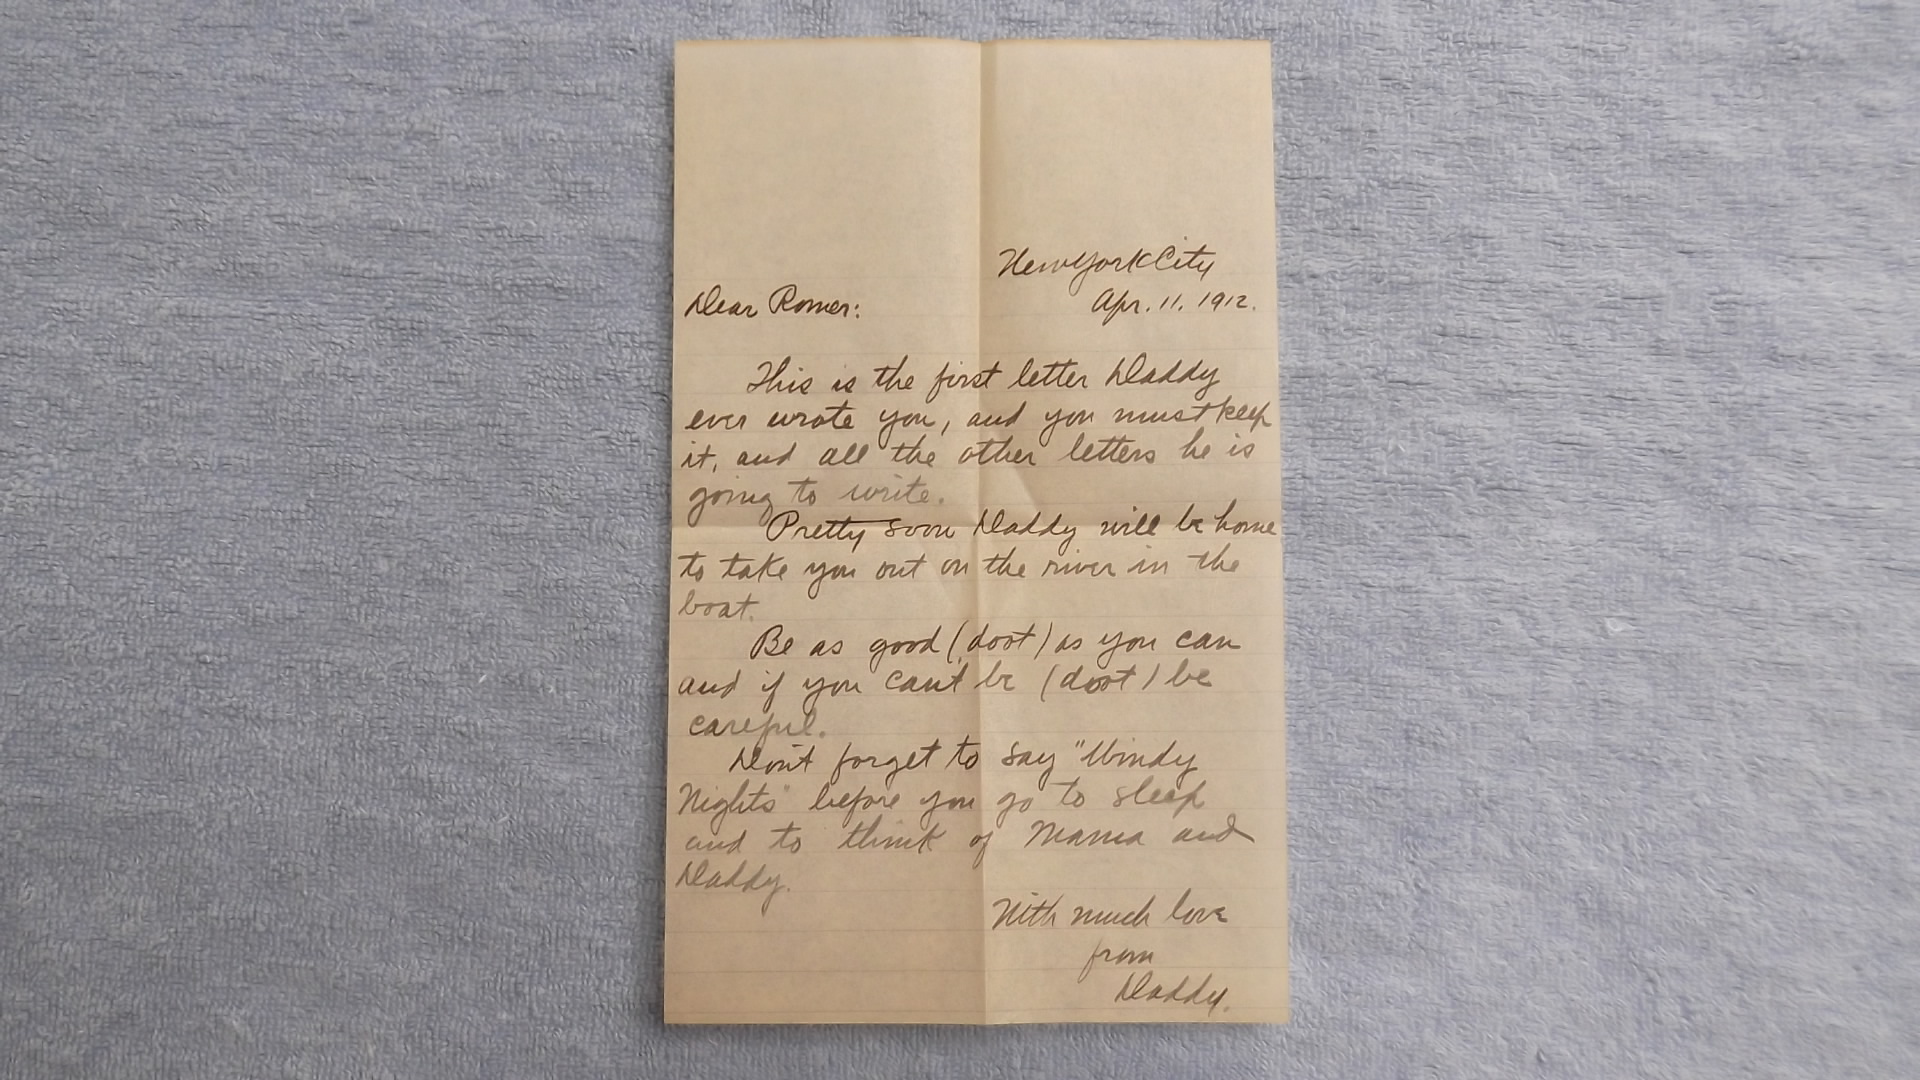 New York City
Apr. 11. 1912.
Dear Romer:
This is the first letter Daddy
ever wrote you, and you must keep
it, and all the other letters he is
going to write.
Pretty soon Daddy will be home
to take you out on the river in the
boat.
Be as good (doot) as you can
and if you can't be (doot) be
careful.
Don't forget to say "Windy
Nights" before you go to sleep
and to think of Mama and
Daddy.
With much love
from
Daddy.